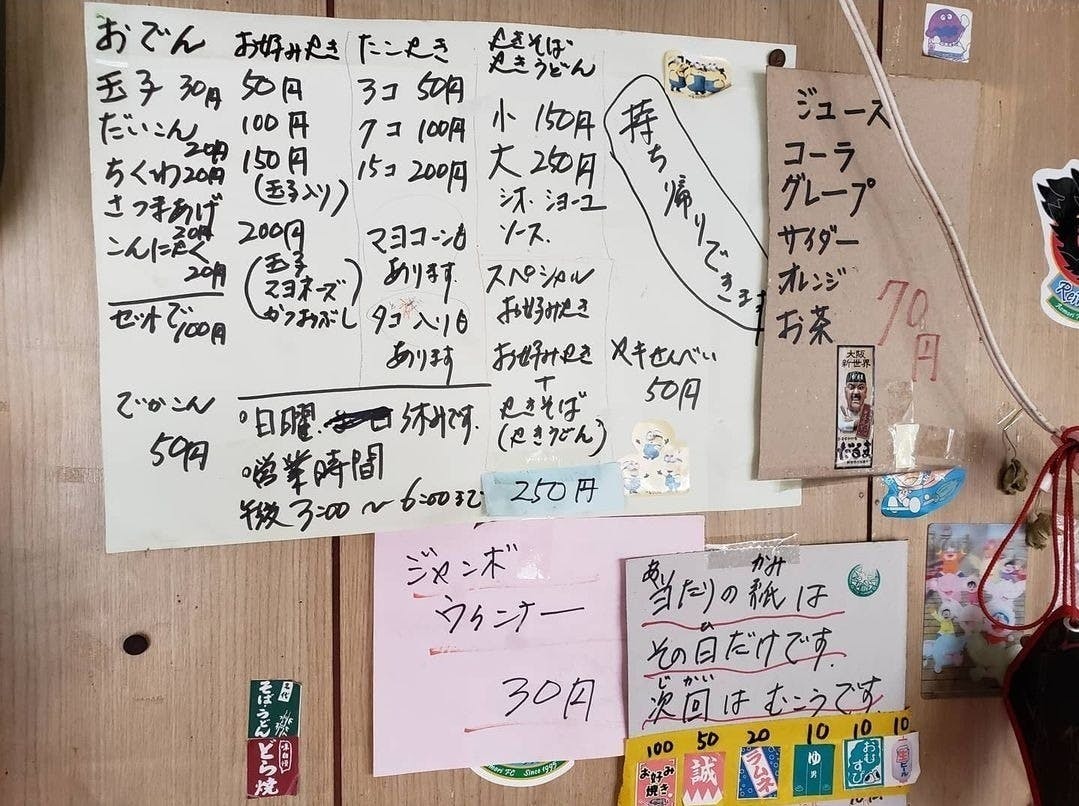 おでん
玉子 30円
だいこん
20円
ちくわ 20円
さつまあげ
30円
こんにゃく
20円
セットで100円
でかこん
50円
お好みやき
50円
100円
150円
(玉子入り)
200円
(玉子
マヨネーズ
かつおぶし)
たこやき
3コ 50円
7コ 100円
15コ 200円
マヨコーンも
あります
タコ入りも
あります
日曜. 休みです.
営業時間
午後3:00～6:00まで
やきそば
やきうどん
小 150円
大 250円
シオ・ショーユ
ソース.
スペシャル
お好みやき
お好みやき
+
やきそば
(やきうどん)
250円
持ち帰りできます
ヤキせんべい
50円
ジュース
コーラ
グレープ
サイダー
オレンジ
お茶
70円
大阪
新世界
だるま
ジャンボ
ウィンナー
30円
あ かみ
当たりの紙は
ひ
その日だけです.
じ かい
次回はむこうです
100 50 20 10 10 10
お好み焼き
誠
ラムネ
ゆ
男
おむすび
生ビール
そばうどん
どら焼
Aomori FC Since 1995